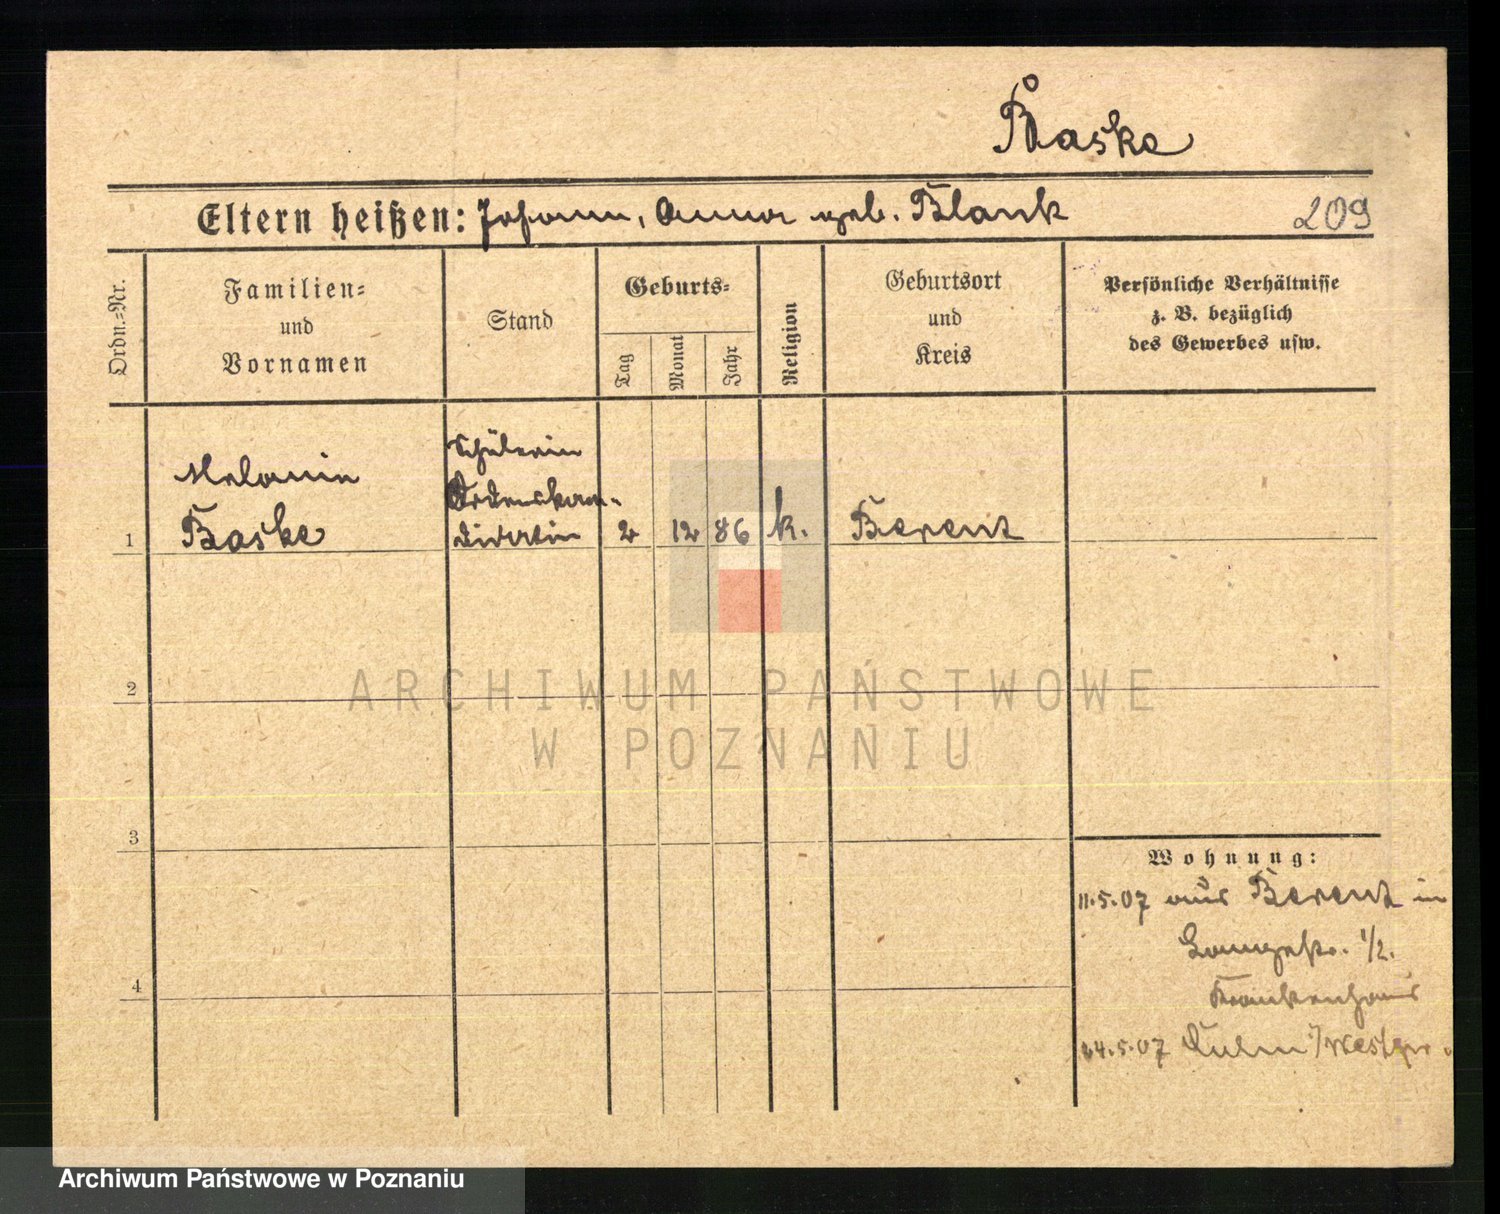 Baske
Eltern heißen: Johann, Anna geb. Blank
209
Ordn.=Nr.
Familien=
und
Vornamen
Stand
Geburts=
Tag
Monat
Jahr
Religion
Geburtsort
und
Kreis
Persönliche Verhältnisse
z. B. bezüglich
des Gewerbes usw.
Melanie
Baske
Schülerin
Ordenskan-
didatin
1
2 12 86 k. Berent
2
3
4
Wohnung:
11.5.07 aus Berent in
Langestr. 1/2.
Krankenhaus
24.5.07 Kulm i/Westpr.
ARCHIWUM PAŃSTWOWE
W POZNANIU
Archiwum Państwowe w Poznaniu